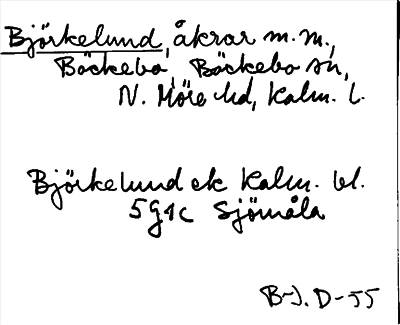 Björkelund, åkrar m.m.,
Bäckebo, Bäckebo sn,
N. Möre hd, Kalm. l.
Björkelund ek Kalm. bl.
5G4c Sjömåla
B-J. D-55